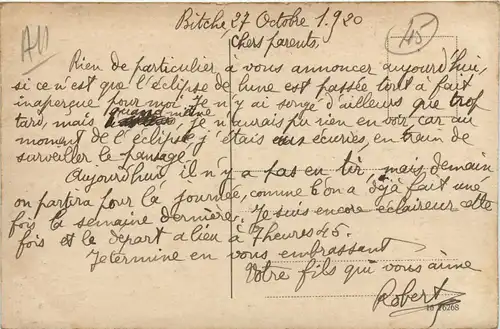 A11
45
Bitche 27 Octobre 1920
Chers parents,
Rien de particulier à vous annoncer aujourd'hui,
si ce n'est que l'éclipse de lune est passée tout à fait
inaperçue pour moi. Je n'y ai songé d'ailleurs que trop
tard, mais quand même, je n'aurais pu rien en voir, car au
moment de l'éclipse j'étais aux écuries, en train de
surveiller le pansage.
Aujourd'hui il n'y a pas en tir, mais demain
on partira pour la journée, comme l'on a déjà fait une
fois la semaine dernière. Je suis encore éclaireur cette
fois et le départ a lieu à 7 heures 45.
Je termine en vous embrassant
Votre fils qui vous aime
Robert
16 26268